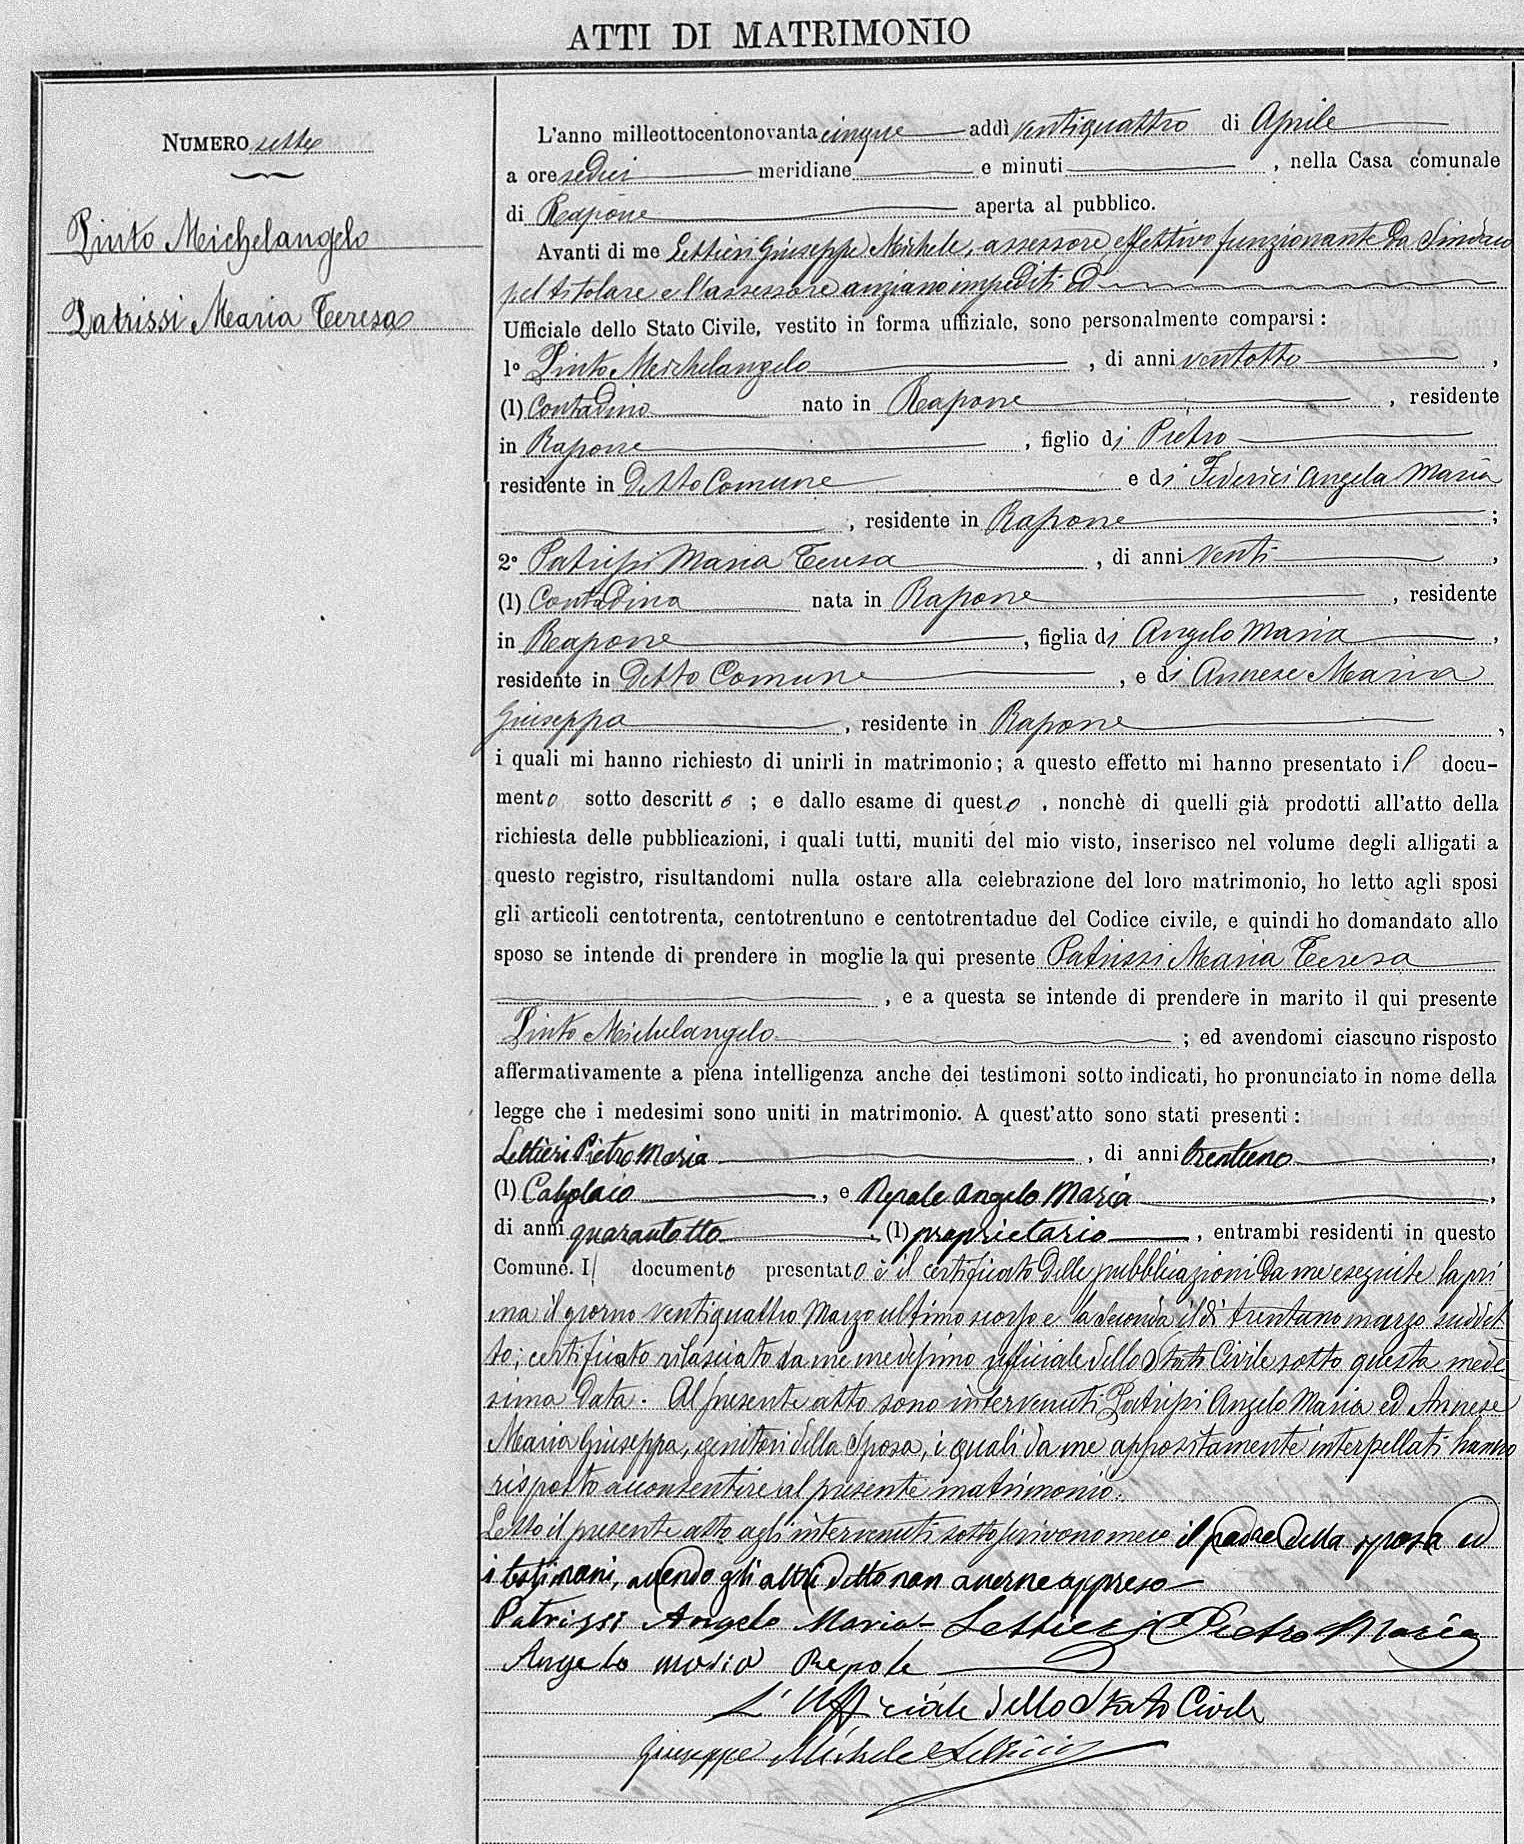 ATTI DI MATRIMONIO
NUMERO sette
Pinto Michelangelo
Patrissi Maria Teresa
L'anno milleottocentonovantacinque addì ventiquattro di Aprile
a ore sedici meridiane e minuti , nella Casa comunale
di Rapone aperta al pubblico.
Avanti di me Lettieri Giuseppe Michele, assessore effettivo funzionante da Sindaco
pel titolare e l'assessore anziano impediti ed
Ufficiale dello Stato Civile, vestito in forma uffiziale, sono personalmente comparsi :
1º Pinto Michelangelo , di anni ventotto ,
(1) Contadino nato in Rapone , residente
in Rapone , figlio di Pietro
residente in detto Comune e di Federici Angela Maria
, residente in Rapone ;
2º Patrissi Maria Teresa , di anni venti ,
(1) Contadina nata in Rapone , residente
in Rapone , figlia di Angelo Maria ,
residente in detto Comune , e di Annese Maria
Giuseppa , residente in Rapone ,
i quali mi hanno richiesto di unirli in matrimonio; a questo effetto mi hanno presentato il docu-
mento sotto descritto ; e dallo esame di questo , nonchè di quelli già prodotti all'atto della
richiesta delle pubblicazioni, i quali tutti, muniti del mio visto, inserisco nel volume degli alligati a
questo registro, risultandomi nulla ostare alla celebrazione del loro matrimonio, ho letto agli sposi
gli articoli centotrenta, centotrentuno e centotrentadue del Codice civile, e quindi ho domandato allo
sposo se intende di prendere in moglie la qui presente Patrissi Maria Teresa
, e a questa se intende di prendere in marito il qui presente
Pinto Michelangelo ; ed avendomi ciascuno risposto
affermativamente a piena intelligenza anche dei testimoni sotto indicati, ho pronunciato in nome della
legge che i medesimi sono uniti in matrimonio. A quest'atto sono stati presenti :
Lettieri Pietro Maria , di anni trentuno ,
(1) Calzolaio , e Repole Angelo Maria ,
di anni quarantotto , (1) proprietario , entrambi residenti in questo
Comune. Il documento presentato è il certificato delle pubblicazioni da me eseguite la pri
ma il giorno ventiquattro Marzo ultimo scorso e la seconda il dì trentuno marzo suddet
to; certificato rilasciato da me medesimo ufficiale dello Stato Civile sotto questa mede
sima data. Al presente atto sono intervenuti Patrissi Angelo Maria ed Annese
Maria Giuseppa, genitori della Sposa, i quali da me appositamente interpellati hanno
risposto acconsentire al presente matrimonio.
Letto il presente atto agli intervenuti sottoscrivono meco il padre della sposa ed
i testimoni, avendo gli altri detto non averne appreso
Patrissi Angelo Maria - Lettieri Pietro Maria
Angelo maria Repole
L'Ufficiale dello Stato Civile
Giuseppe Michele Lettieri